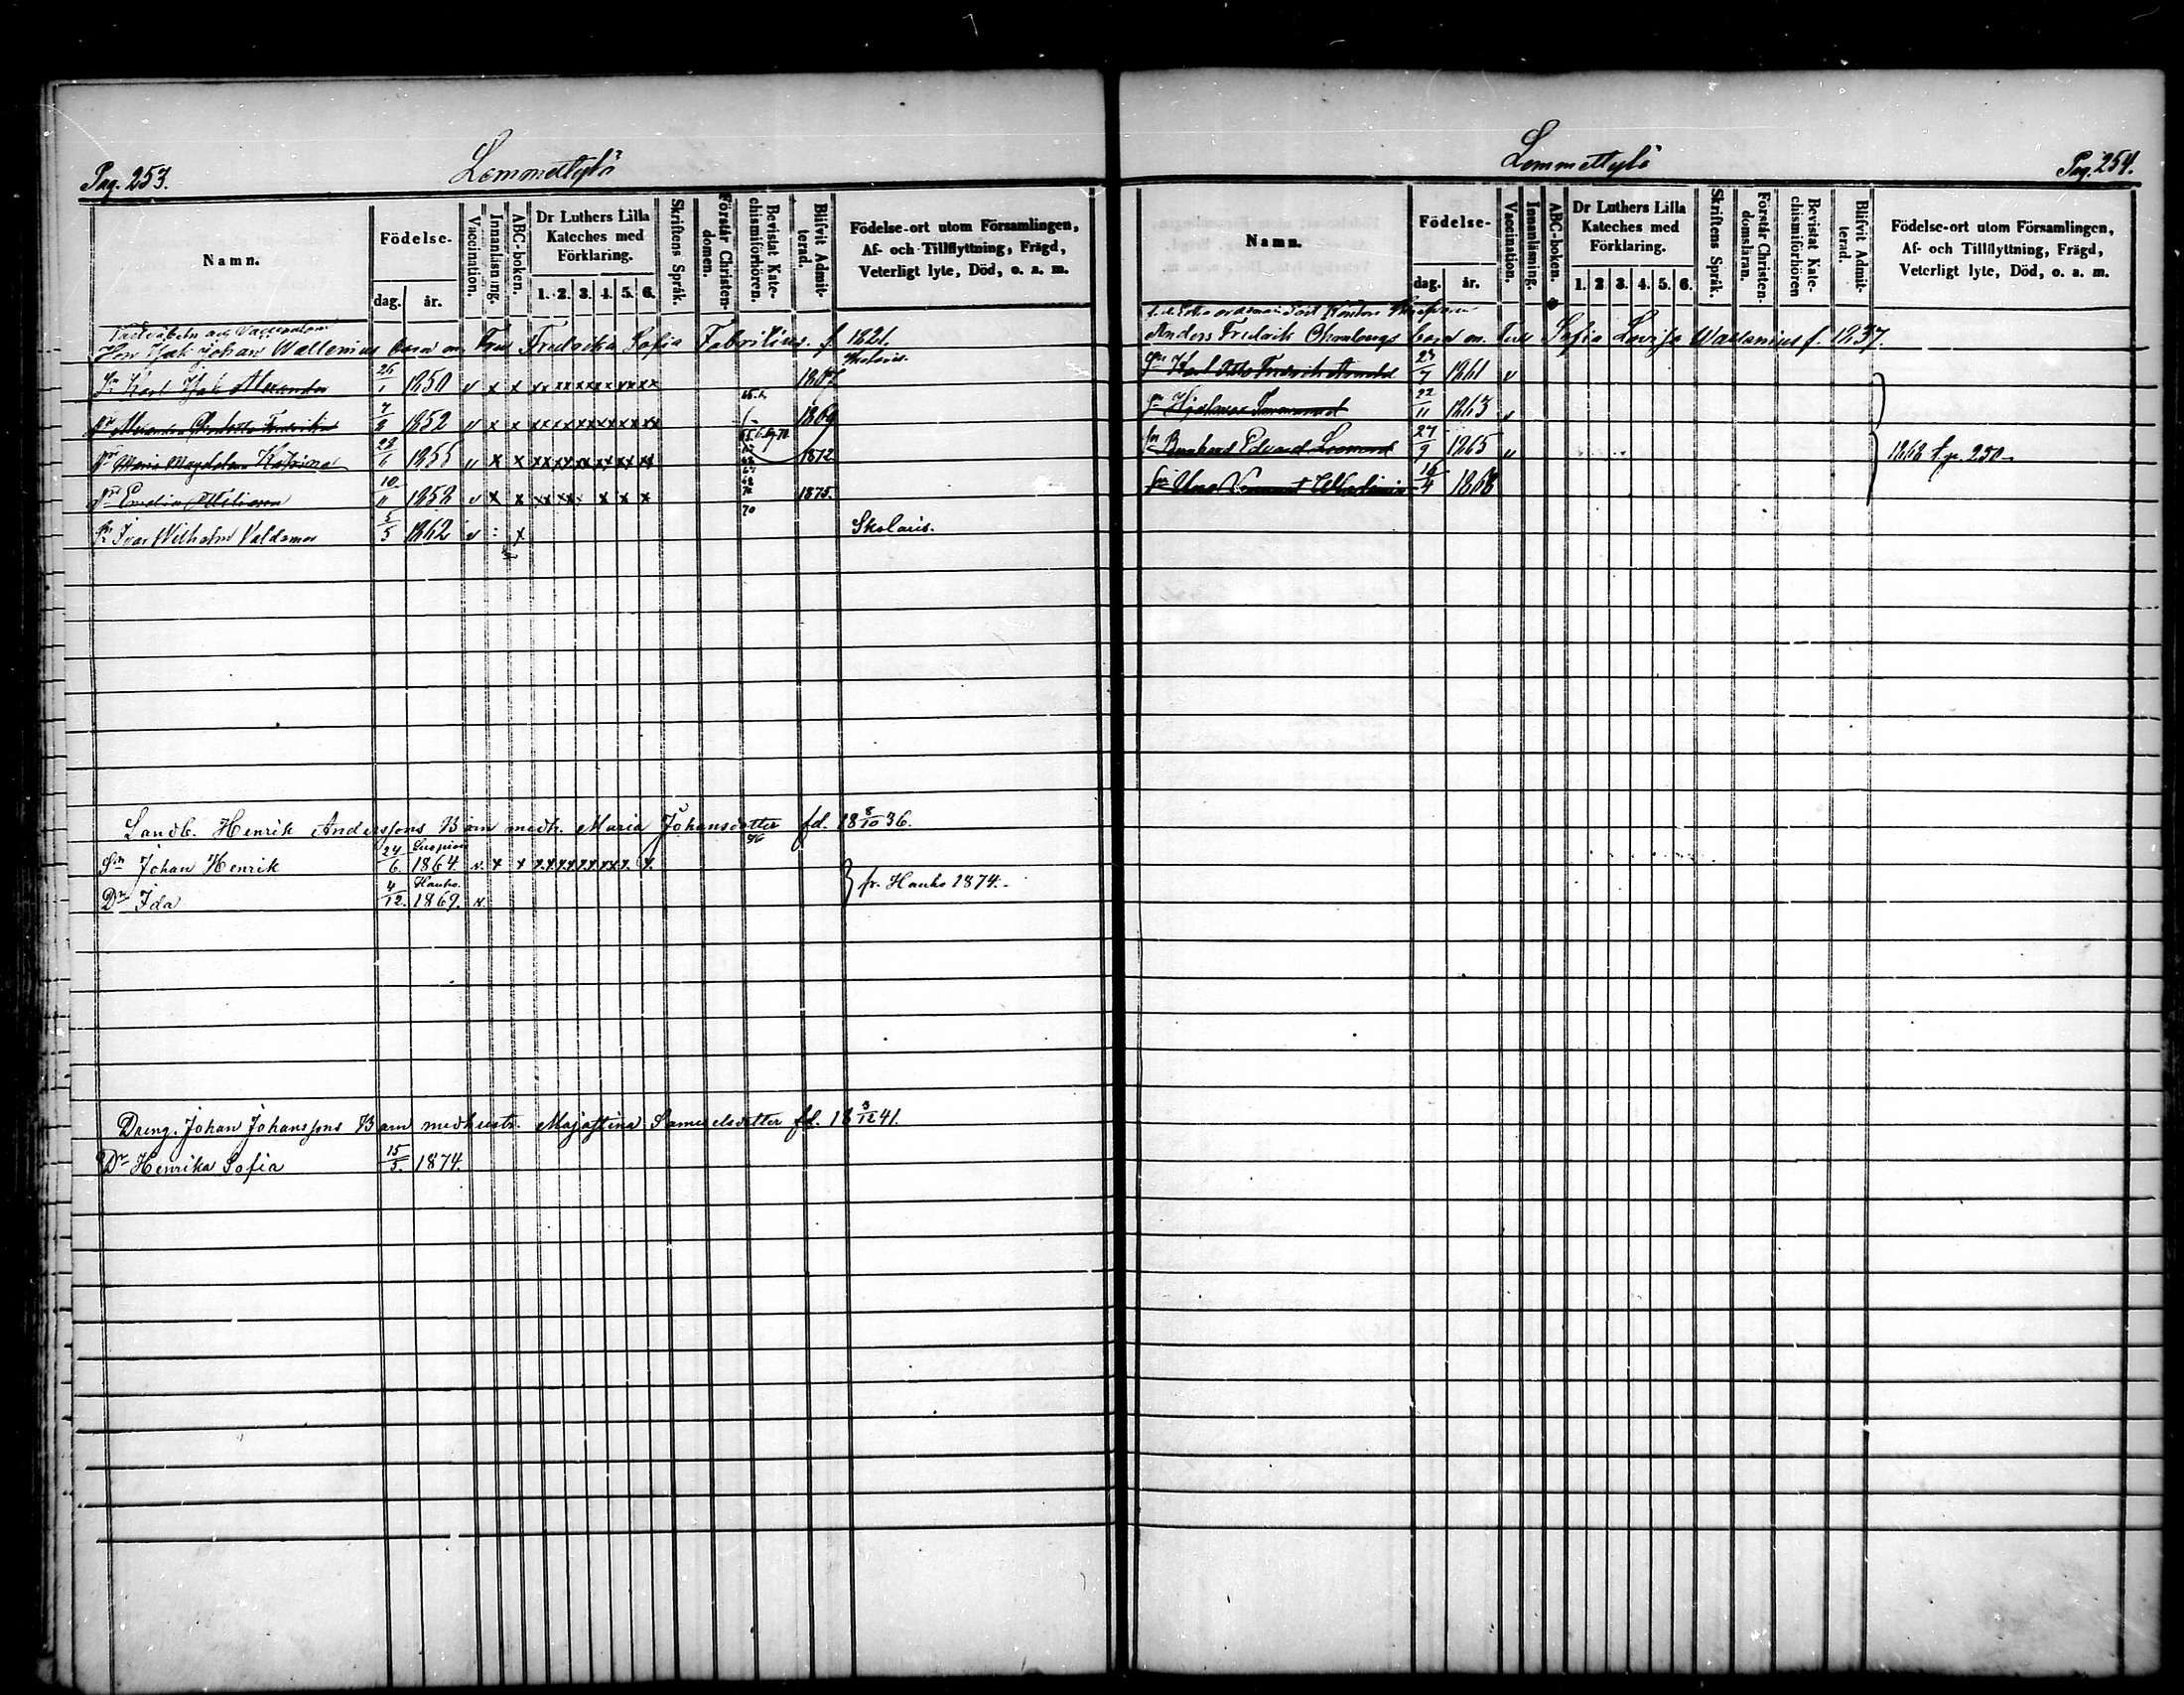 Pag. 253.
Lemmettylä
Namn.
Födelse-
dag. år.
Vaccination.
Innanläsning.
ABC-boken.
Dr Luthers Lilla
Kateches med
Förklaring.
1. 2. 3. 4. 5. 6.
Skriftens Språk.
Förstår Christen-
domen.
Bevistat Kate-
chismiförhören.
Blifvit Admit-
terad.
Födelse-ort utom Församlingen,
Af- och Tillflyttning, Frägd,
Veterligt lyte, Död, o. a. m.
Johan Wallenius barn m. Fru Fredricka Sofia Fabritius. f. 1821.
Sn Karl Isak Alexander 26/1 1850 v x x xx xx xx xx xx xx 1867 Skolaris.
Dr Alexandra Charlotta Fredrika 7/3 1852 v x x xx xx xx xx xx xx 1869
Dr Maria Magdalena Katrina 23/6 1855 v x x xx xx xx xx xx xx 1872
Dr Emelia 10/11 1858 v x x xx xx x x x x 1875.
70
Sn Ivar Wilhelm Valdemar 5/5 1862 v : x Skolaris.
Landb. Henrik Anderssons Barn medh. Maria Johansdotter fd. 18 8/10 36.
Sn Johan Henrik 24/6. 1864. v. x x x.x.x.x.x.x.x.x.x. x.
Dr Ida 4/12. Hauho. 1869. v. } fr. Hauho 1874.
Dreng. Johan Johanssons Barn med hustr. Maja Stina Samuelsdotter fd. 18 3/12 41.
Dr Henrika Sofia 15/5. 1874.
Lemmettylä
Pag. 254.
Namn.
Födelse-
dag. år.
Vaccination.
Innanläsning.
ABC-boken.
Dr Luthers Lilla
Kateches med
Förklaring.
1. 2. 3. 4. 5. 6.
Skriftens Språk.
Förstår Christen-
domsläran.
Bevistat Kate-
chismiförhören
Blifvit Admit-
terad.
Födelse-ort utom Församlingen,
Af- och Tillflyttning, Frägd,
Veterligt lyte, Död, o. a. m.
Anders Fredrik barn m. Fru Sofia Lovisa Wallenius f. 1837.
Sn Karl Otto Fredrik Arnold 23/7 1861 v
Sn Hjalmar 22/11 1863 v
Sn Bernhard Edvard Leonard 27/9 1865 v 1868 f. p. 250
Sn Uno Wladimir 14/4 1868